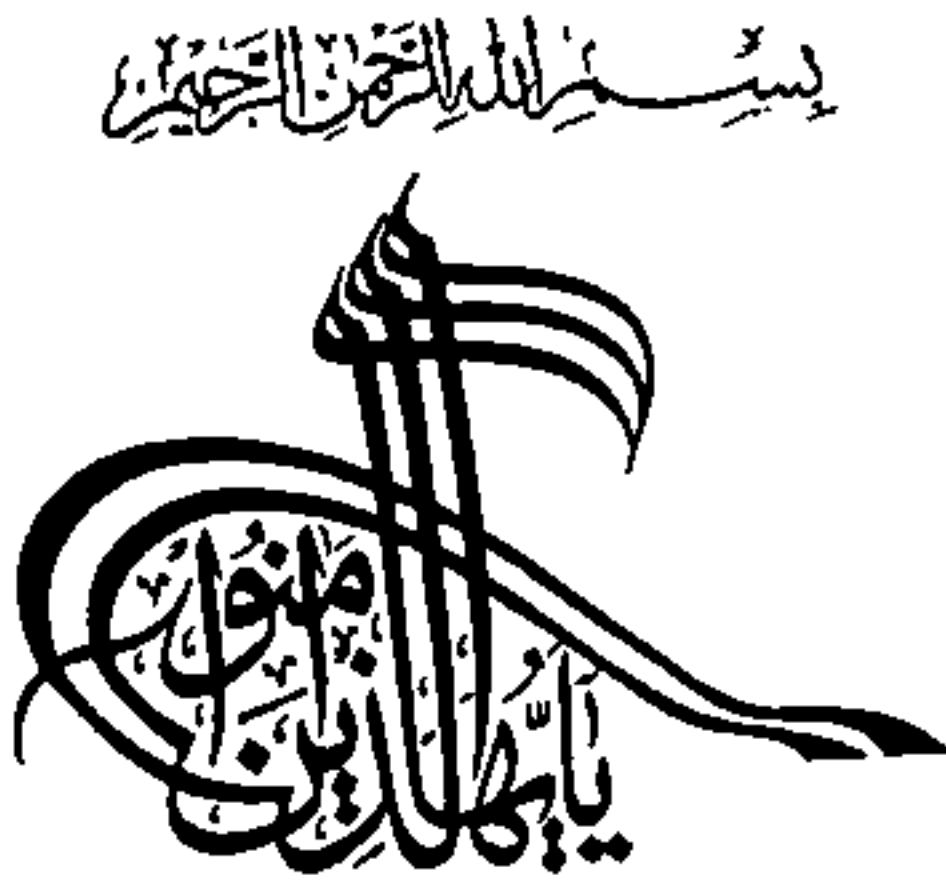 بِسْمِ اللهِ الرَّحْمٰنِ الرَّحِيْمِ
يٰاَيُّهَا الَّذِيْنَ اٰمَنُوْا